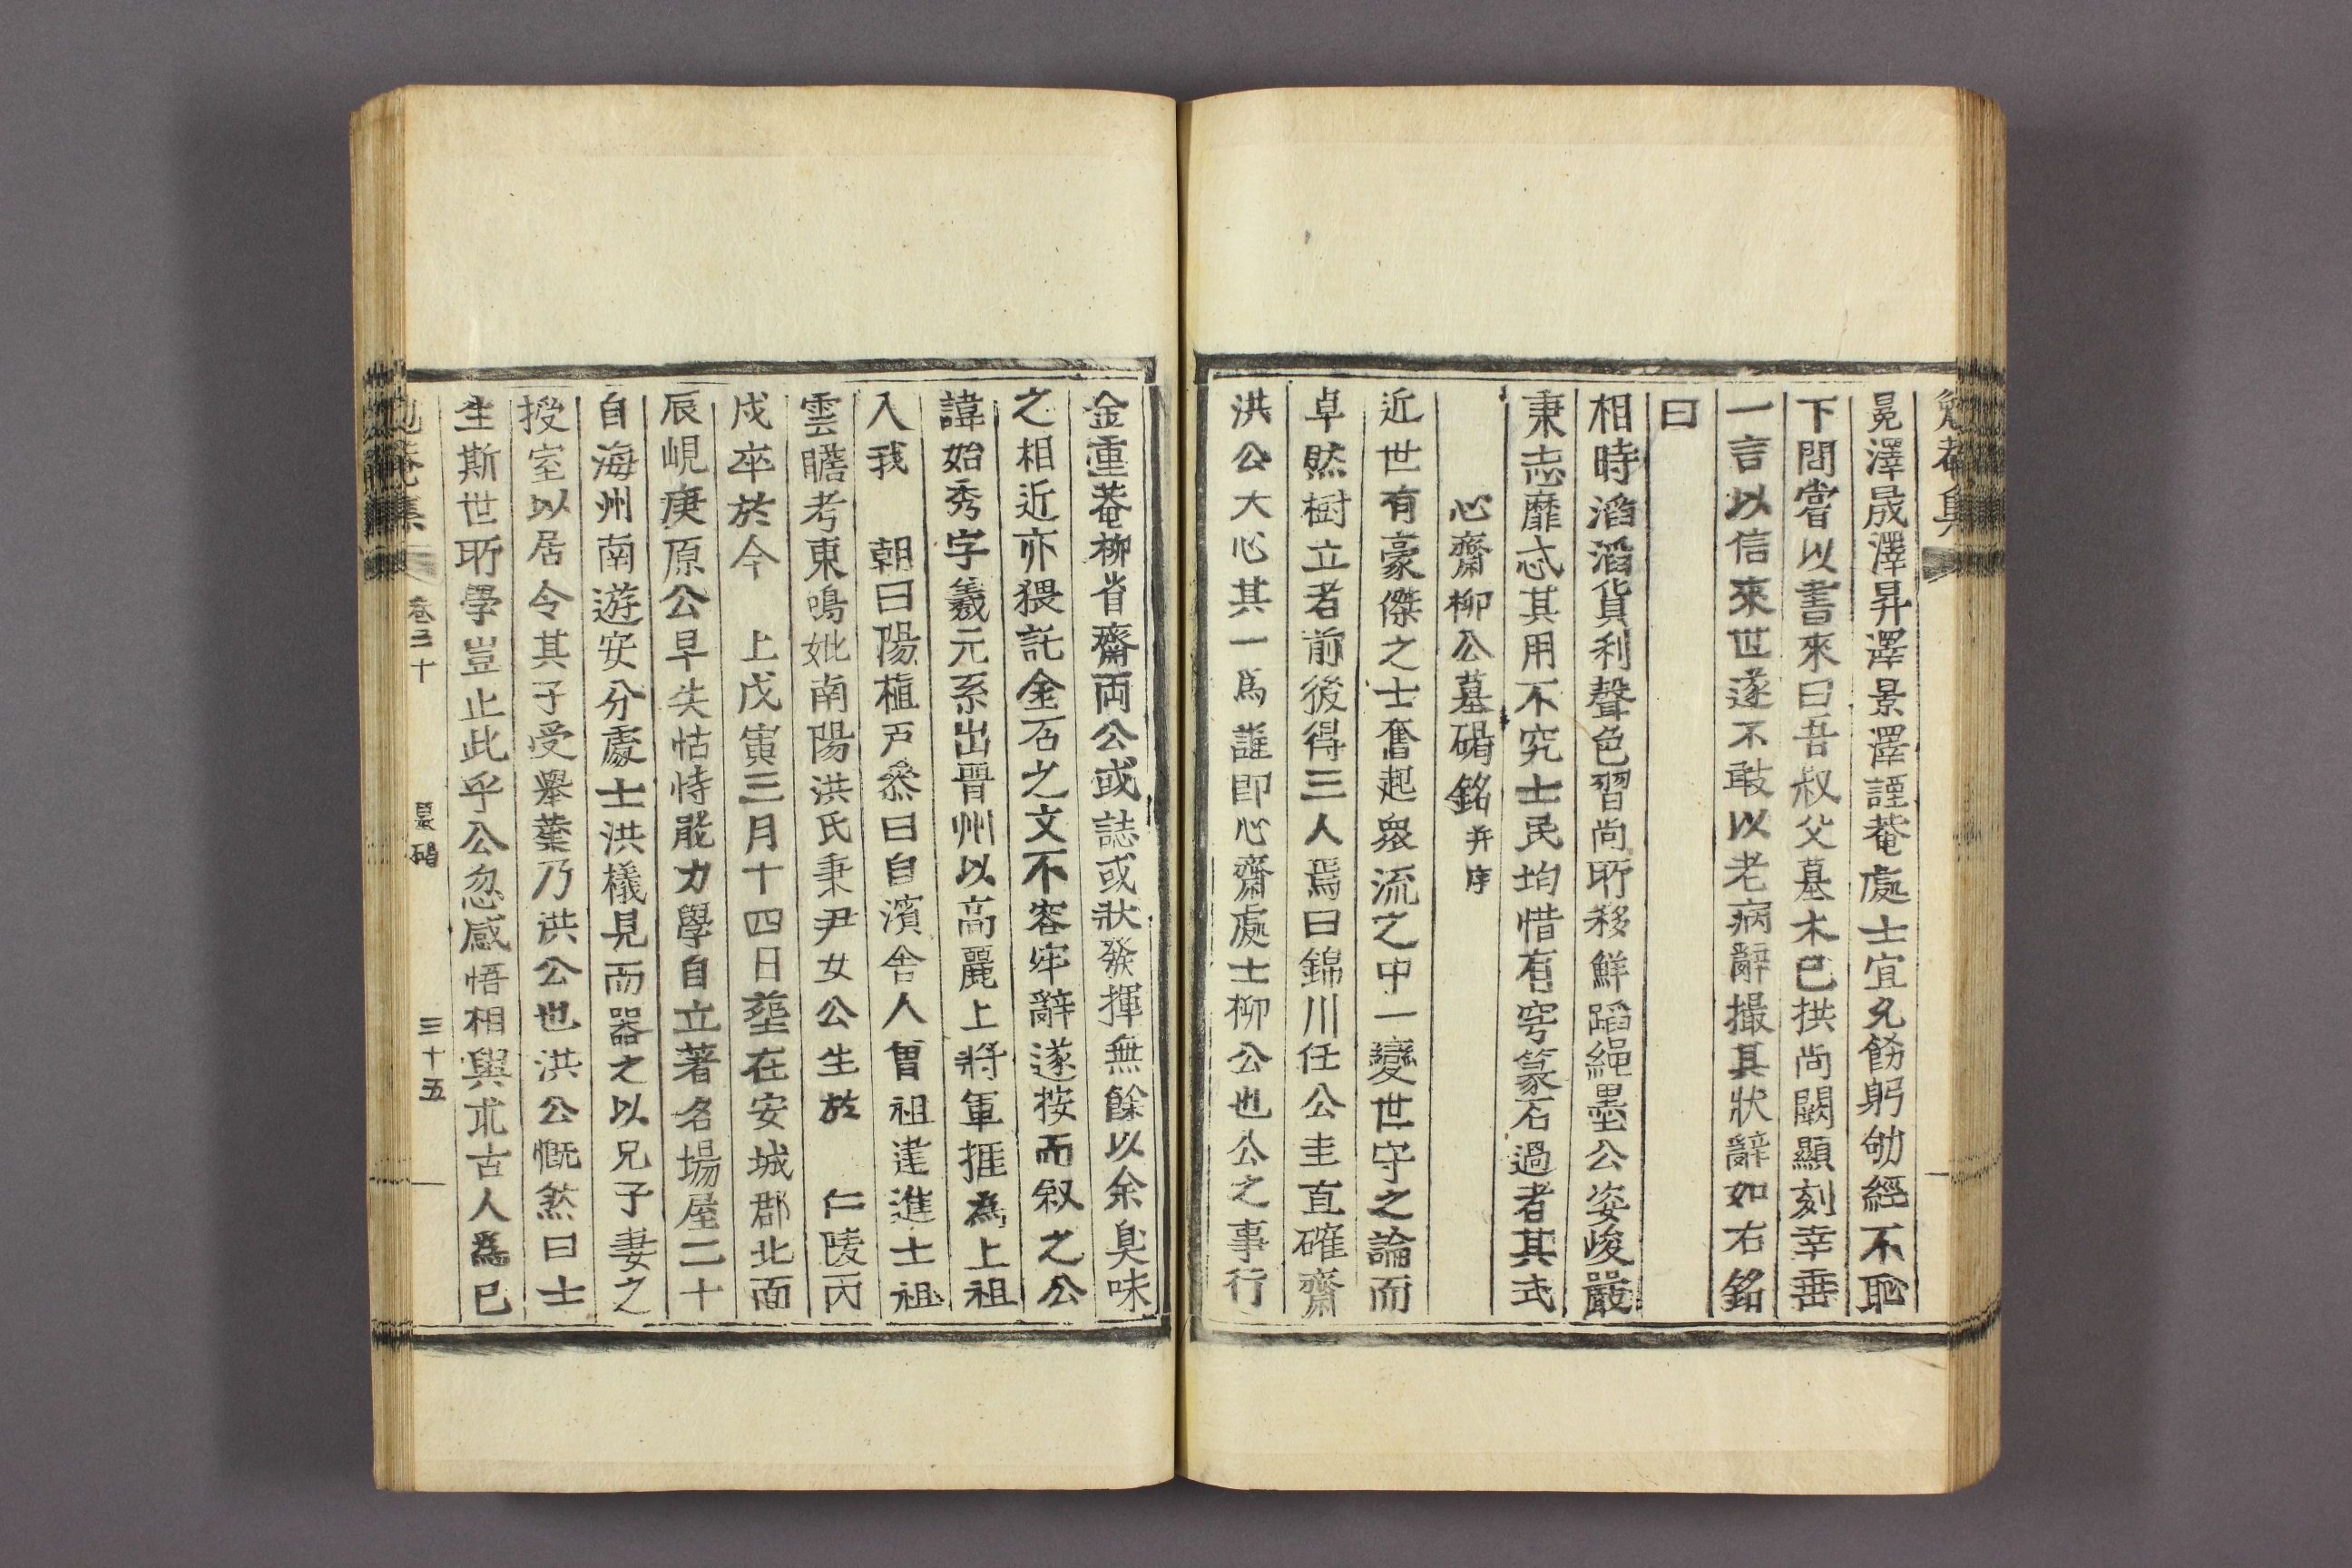 晃澤晟澤昇澤景澤謹菴處士宜允飭躬劬經不恥
下問嘗以書來曰吾叔父墓木已拱尚闕顯刻幸垂
一言以信來世遂不敢以老病辭撮其狀辭如右銘
曰
相時滔滔貨利聲色習尚所移鮮蹈繩墨公姿峻嚴
秉志靡忒其用不究士民均惜有穹篆石過者其式
心齋柳公墓碣銘 并序
近世有豪傑之士奮起衆流之中一變世守之論而
卓然樹立者前後得三人焉曰錦川任公圭直確齋
洪公大心其一爲誰卽心齋處士柳公也公之事行
金重菴柳省齋兩公或誌或狀發揮無餘以余臭味
之相近亦猥託金石之文不容牢辭遂按而叙之公
諱始秀字羲元系出晋州以高麗上將軍挺爲上祖
入我 朝曰陽植戶叅曰自濱舍人曾祖逹進士祖
雲瞻考東鳴妣南陽洪氏秉尹女公生於 仁陵丙
戍卒於今 上戊寅三月十四日塟在安城郡北面
辰峴庚原公早失怙恃能力學自立著名場屋二十
自海州南遊安分處士洪樣見而器之以兄子妻之
授室以居令其子受舉葉乃洪公也洪公慨然曰士
生斯世所學豈止此乎公忽感悟相與求古人爲己
卷三十
墓碣
三十五